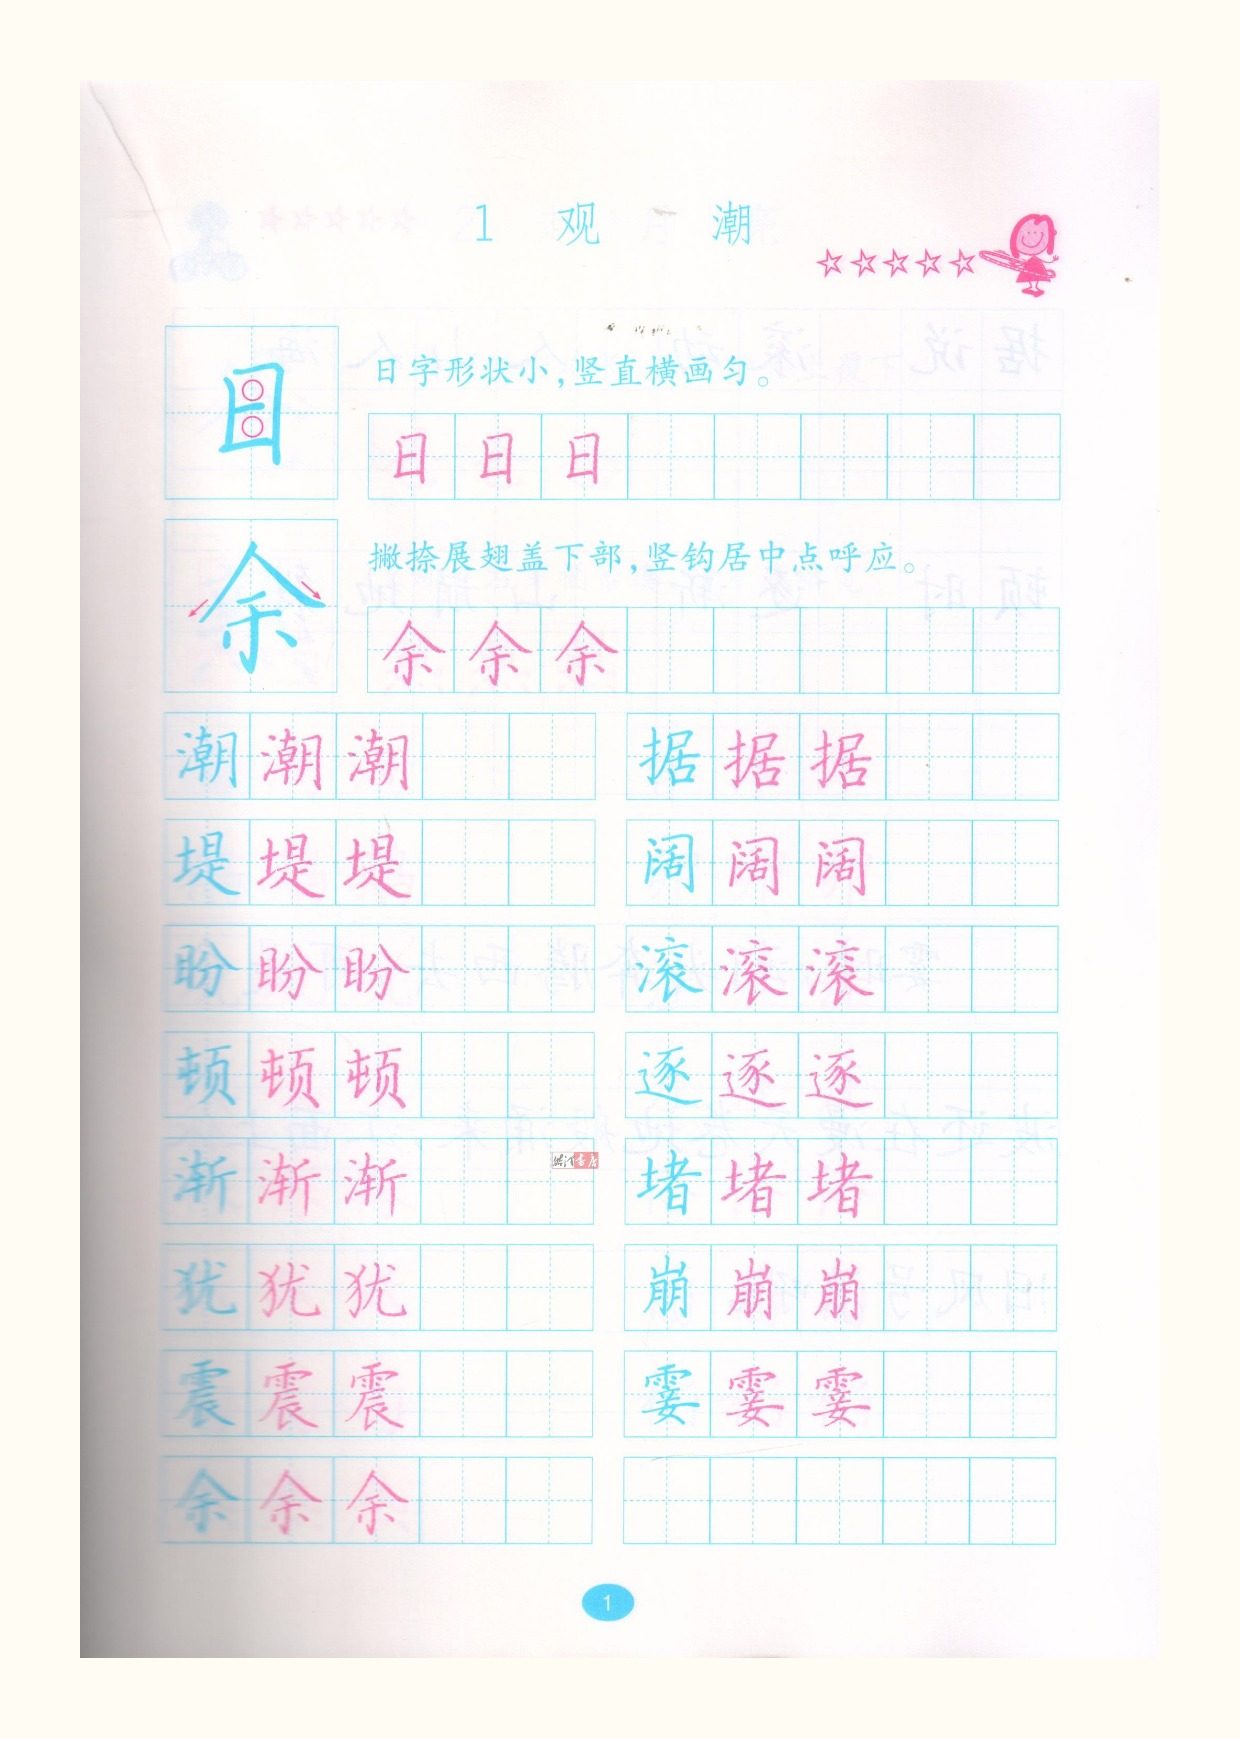 1 观 潮
日 日字形状小,竖直横画匀。
日 日 日
余 撇捺展翅盖下部,竖钩居中点呼应。
余 余 余
潮 潮 潮 据 据 据
堤 堤 堤 阔 阔 阔
盼 盼 盼 滚 滚 滚
顿 顿 顿 逐 逐 逐
渐 渐 渐 堵 堵 堵
犹 犹 犹 崩 崩 崩
震 震 震 霎 霎 霎
余 余 余
1